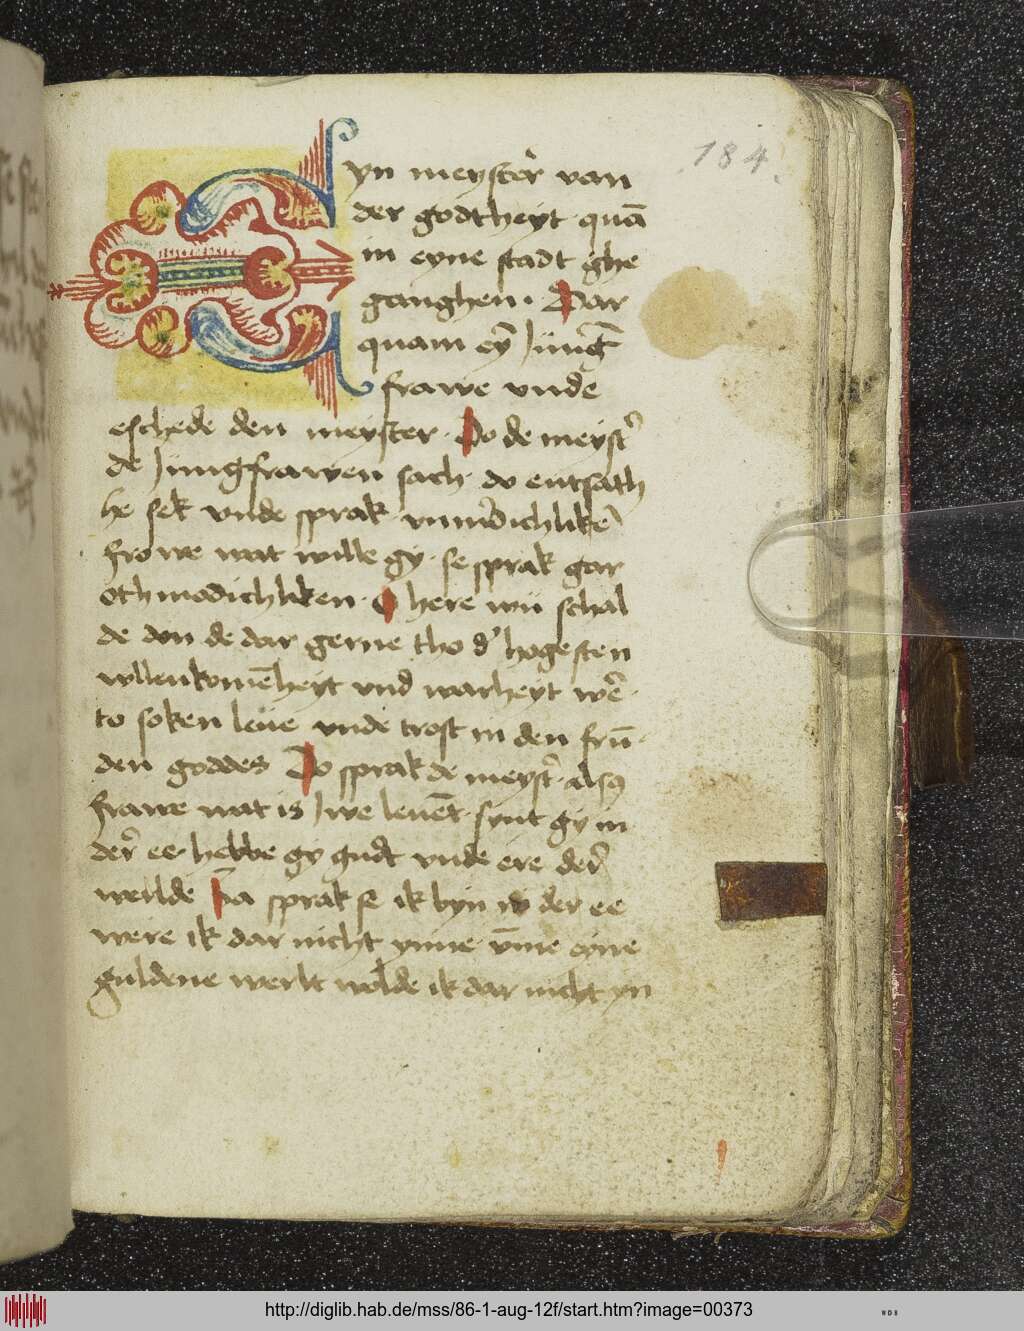 184.
Eyn meyster van
der godtheyt quā
in eyne stadt ghe
ganghen. Dar
quam eȳ Jung
frawe unde
eschede den meyster. Do de meyst̉
de Jungfrawen sach do entsath
he sek unde sprak
frowe wat wille gy. se sprak gar
othmodichliken. O here wü schal
de don de dar gerne tho d' hogesten
vullenkomēheyt vnd warheyt wē.
to soken leue unde trost in den frū
den goddes Do sprak de meyst̉ also
frawe wat is Jwe leuēt. synt gy in
der ee. hebbe gy gudt unde ere der
werlde Ja sprak se ik byn in der ee
were ik dar nicht ynne. v̄me eyne
guldene werlt wolde ik dar nicht yn
http://diglib.hab.de/mss/86-1-aug-12f/start.htm?image=00373